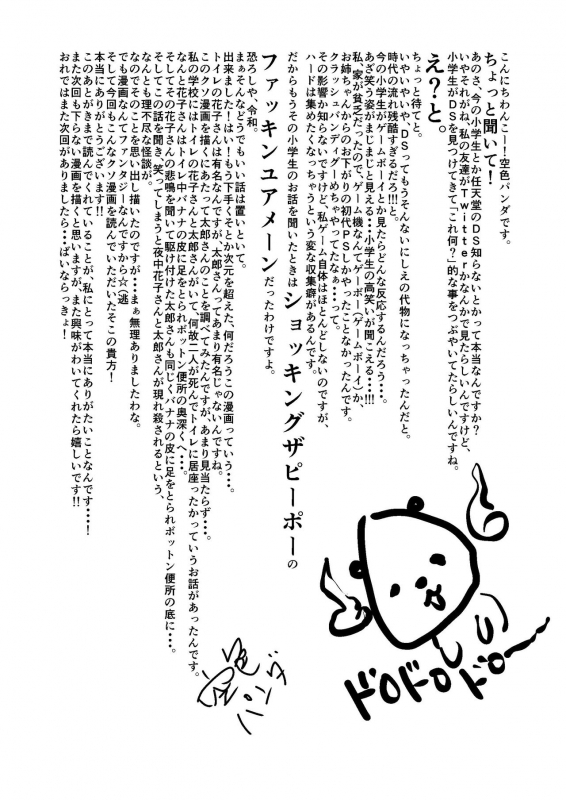 こんにちわんこー！空色パンダです。
ちょっと聞いて！
あのさ、今の小学生とか任天堂のＤＳ知らないとかって本当なんですか？
いやそれがね、私の友達がＴｗｉｔｔｅｒかなんかで見たらしいんですけど、
小学生がＤＳを見つけてきて「これ何？」的な事をつぶやいてたらしいんですね。
え？と。
ちょっと待てと。
いやいやいや、ＤＳってもうそんないにしえの代物になっちゃったんだと。
時代の流れ残酷すぎるだろ！！！と。
今の小学生がゲームボーイとか見たらどんな反応するんだろう・・・。
あざ笑う姿がまじまじと見える・・・小学生の高笑いが聞こえる・・・！！！
私、家が貧乏だったので、ゲーム機なんてゲーボー（ゲームボーイ）か、
お姉ちゃんからのお下がりの初代ＰＳしかやったことなかったんです。
クラッシュバンディグーめちゃやってたなぁ・・・って。
その影響か知らないんですけど、私ゲーム自体はほとんどしないのですが、
ハードは集めたくなっちゃうという変な収集癖があるんです。
だからもうその小学生のお話を聞いたときはショッキングザピーポーの
ファッキンユアメーンだったわけですよ。
恐ろしや、令和。
まぁそんなどうでもいい話は置いといて。
出来ました！はい！もう下手くそとか次元を超えた、何だろうこの漫画っていう・・・。
トイレの花子さんは有名なんですが、太郎さんってあまり有名じゃないんですね。
このクソ漫画を描くにあたって太郎さんのことを調べてみたんですが、あまり見当たらず・・・。
私の学校にはトイレの花子さんと太郎さんがいて、何故二人が死んでトイレに居座ったかっていうお話があったんです。
なんと花子さんはトイレ中バナナの皮に足をとられボットン便所の奥深くへ・・・。
そしてその花子さんの悲鳴を聞いて駆け付けた太郎さんも同じくバナナの皮に足をとられボットン便所の底に・・・。
そしてこの話を聞き、笑ってしまうと夜中花子さんと太郎さんが現れ殺されるという、
なんとも理不尽な怪談が。
なのでそのことを思い出し描いたのですが・・・まぁ無理ありましたわな。
でも漫画なんてファンタジーなんですから☆（逃
そして今回もこんなクソ漫画を読んでいただいたそこの貴方！
本当にありがとうございます！！
このあとがきまで読んでくれていることが、私にとって本当にありがたいことなんです・・・・！
また次回も下らない漫画を描くと思いますが、また興味がわいてくれたら嬉しいです！！
おれではまた次回がありましたら・・・ばいならっきょ！
ドロドロ
ドロー
空色
パンダ